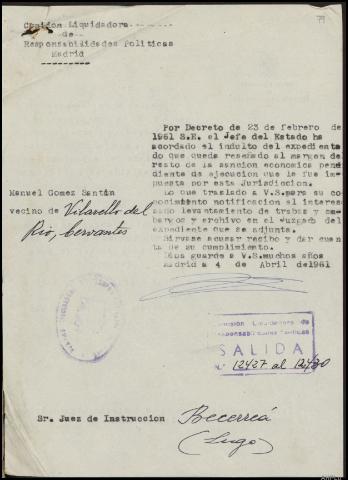 79
Comision Liquidadora
de
Responsabilidades Politicas
Madrid
Por Decreto de 23 de febrero de
1961 S.E. el Jefe del Estado ha
acordado el indulto del expedienta
do que queda reseñado al margen de
resto de la sancion economica pen
diente de ejecucion que le fue im
puesta por esta Jurisdiccion.
Lo que traslado a V.S. para su co
nocimiento notificacion al interes
sado levantamiento de trabas y em
bargos y archivo en el Juzgado del
expediente que se adjunta.
Sirvase acusar recibo y dar cuen
ta de su cumplimiento.
Dios guarde a V.S. muchos años
Madrid a 4 de Abril de 1961
Manuel Gomez Santin
vecino de Vilarello del
Rio, Cervantes
Comisión Liquidadora de
Responsabilidades Políticas
SALIDA
N.º 12427 al 12430
Sr. Juez de Instruccion Becerreá
(Lugo)